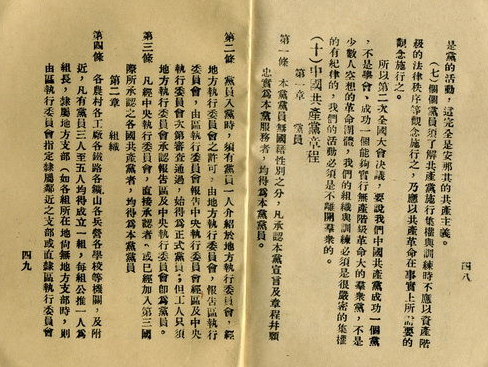 是黨的活動，這完全是安那其的共產主義。
（七）個個黨員須了解共產黨施行集權與訓練時不應以資產階
級的法律秩序等觀念施行之，乃應以共產革命在事實上所需要的
觀念施行之。
所以第二次全國大會決議，要說我們中國共產黨成功一個黨
，不是學會，成功一個能夠實行無產階級革命大的羣衆黨，不是
少數人空想的革命團體，我們的組織與訓練必須是很嚴密的集權
的有紀律的，我們的活動必須是不離開羣衆的。
（十）中國共產黨章程
第一章　黨員
第一條　本黨黨員無國籍性別之分，凡承認本黨宣旨及章程并願
忠實爲本黨服務者，均得爲本黨黨員。
四八
第二條　黨員入黨時，須有黨員一人介紹於地方執行委員會，經
地方執行委員會之許可，由地方執行委員會，報告區執行
委員會，由區執行委員會報告中央執行委員會經區及中央
執行委員會次第審查通過，始得爲正式黨員；但工人只須
地方執行委員會承認報告區及中央執行委員會即爲黨員。
第三條　凡經中央執行委員會，直接承認者，或已經加入第三國
際所承認之各國共產黨者，均得爲本黨黨員
第二章　組織
第四條　各農村各工廠各鐵路各鑛山各兵營各學校等機關，及附
近，凡有黨員三人至五人均得成立一組，每組公推一人爲
組長，隸屬地方支部（如各組所在地尚無地方支部時，則
由區執行委員會指定隸屬鄰近之支部或直隸區執行委員會
四九